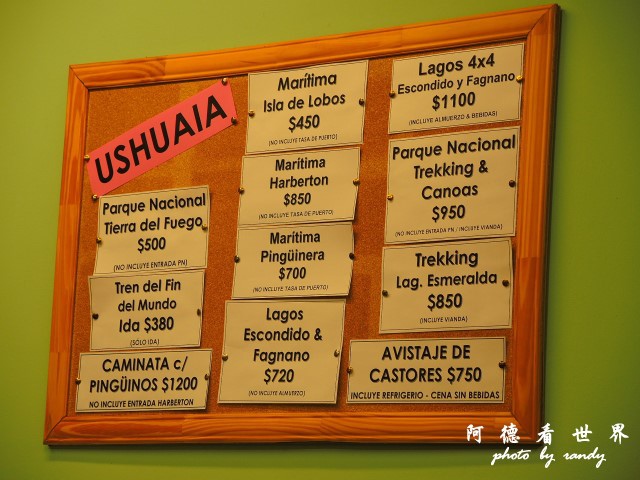 USHUAIA
Parque Nacional
Tierra del Fuego
$500
(NO INCLUYE ENTRADA PN)
Tren del Fin
del Mundo
Ida $380
(SÓLO IDA)
CAMINATA c/
PINGÜINOS $1200
NO INCLUYE ENTRADA HARBERTON
Marítima
Isla de Lobos
$450
(NO INCLUYE TASA DE PUERTO)
Marítima
Harberton
$850
(NO INCLUYE TASA DE PUERTO)
Marítima
Pingüinera
$700
(NO INCLUYE TASA DE PUERTO)
Lagos
Escondido &
Fagnano
$720
(NO INCLUYE ALMUERZO)
Lagos 4x4
Escondido y Fagnano
$1100
(INCLUYE ALMUERZO & BEBIDAS)
Parque Nacional
Trekking &
Canoas
$950
(NO INCLUYE ENTRADA PN / INCLUYE VIANDA)
Trekking
Lag. Esmeralda
$850
(INCLUYE VIANDA)
AVISTAJE DE
CASTORES $750
INCLUYE REFRIGERIO - CENA SIN BEBIDAS
阿德看世界
photo by randy